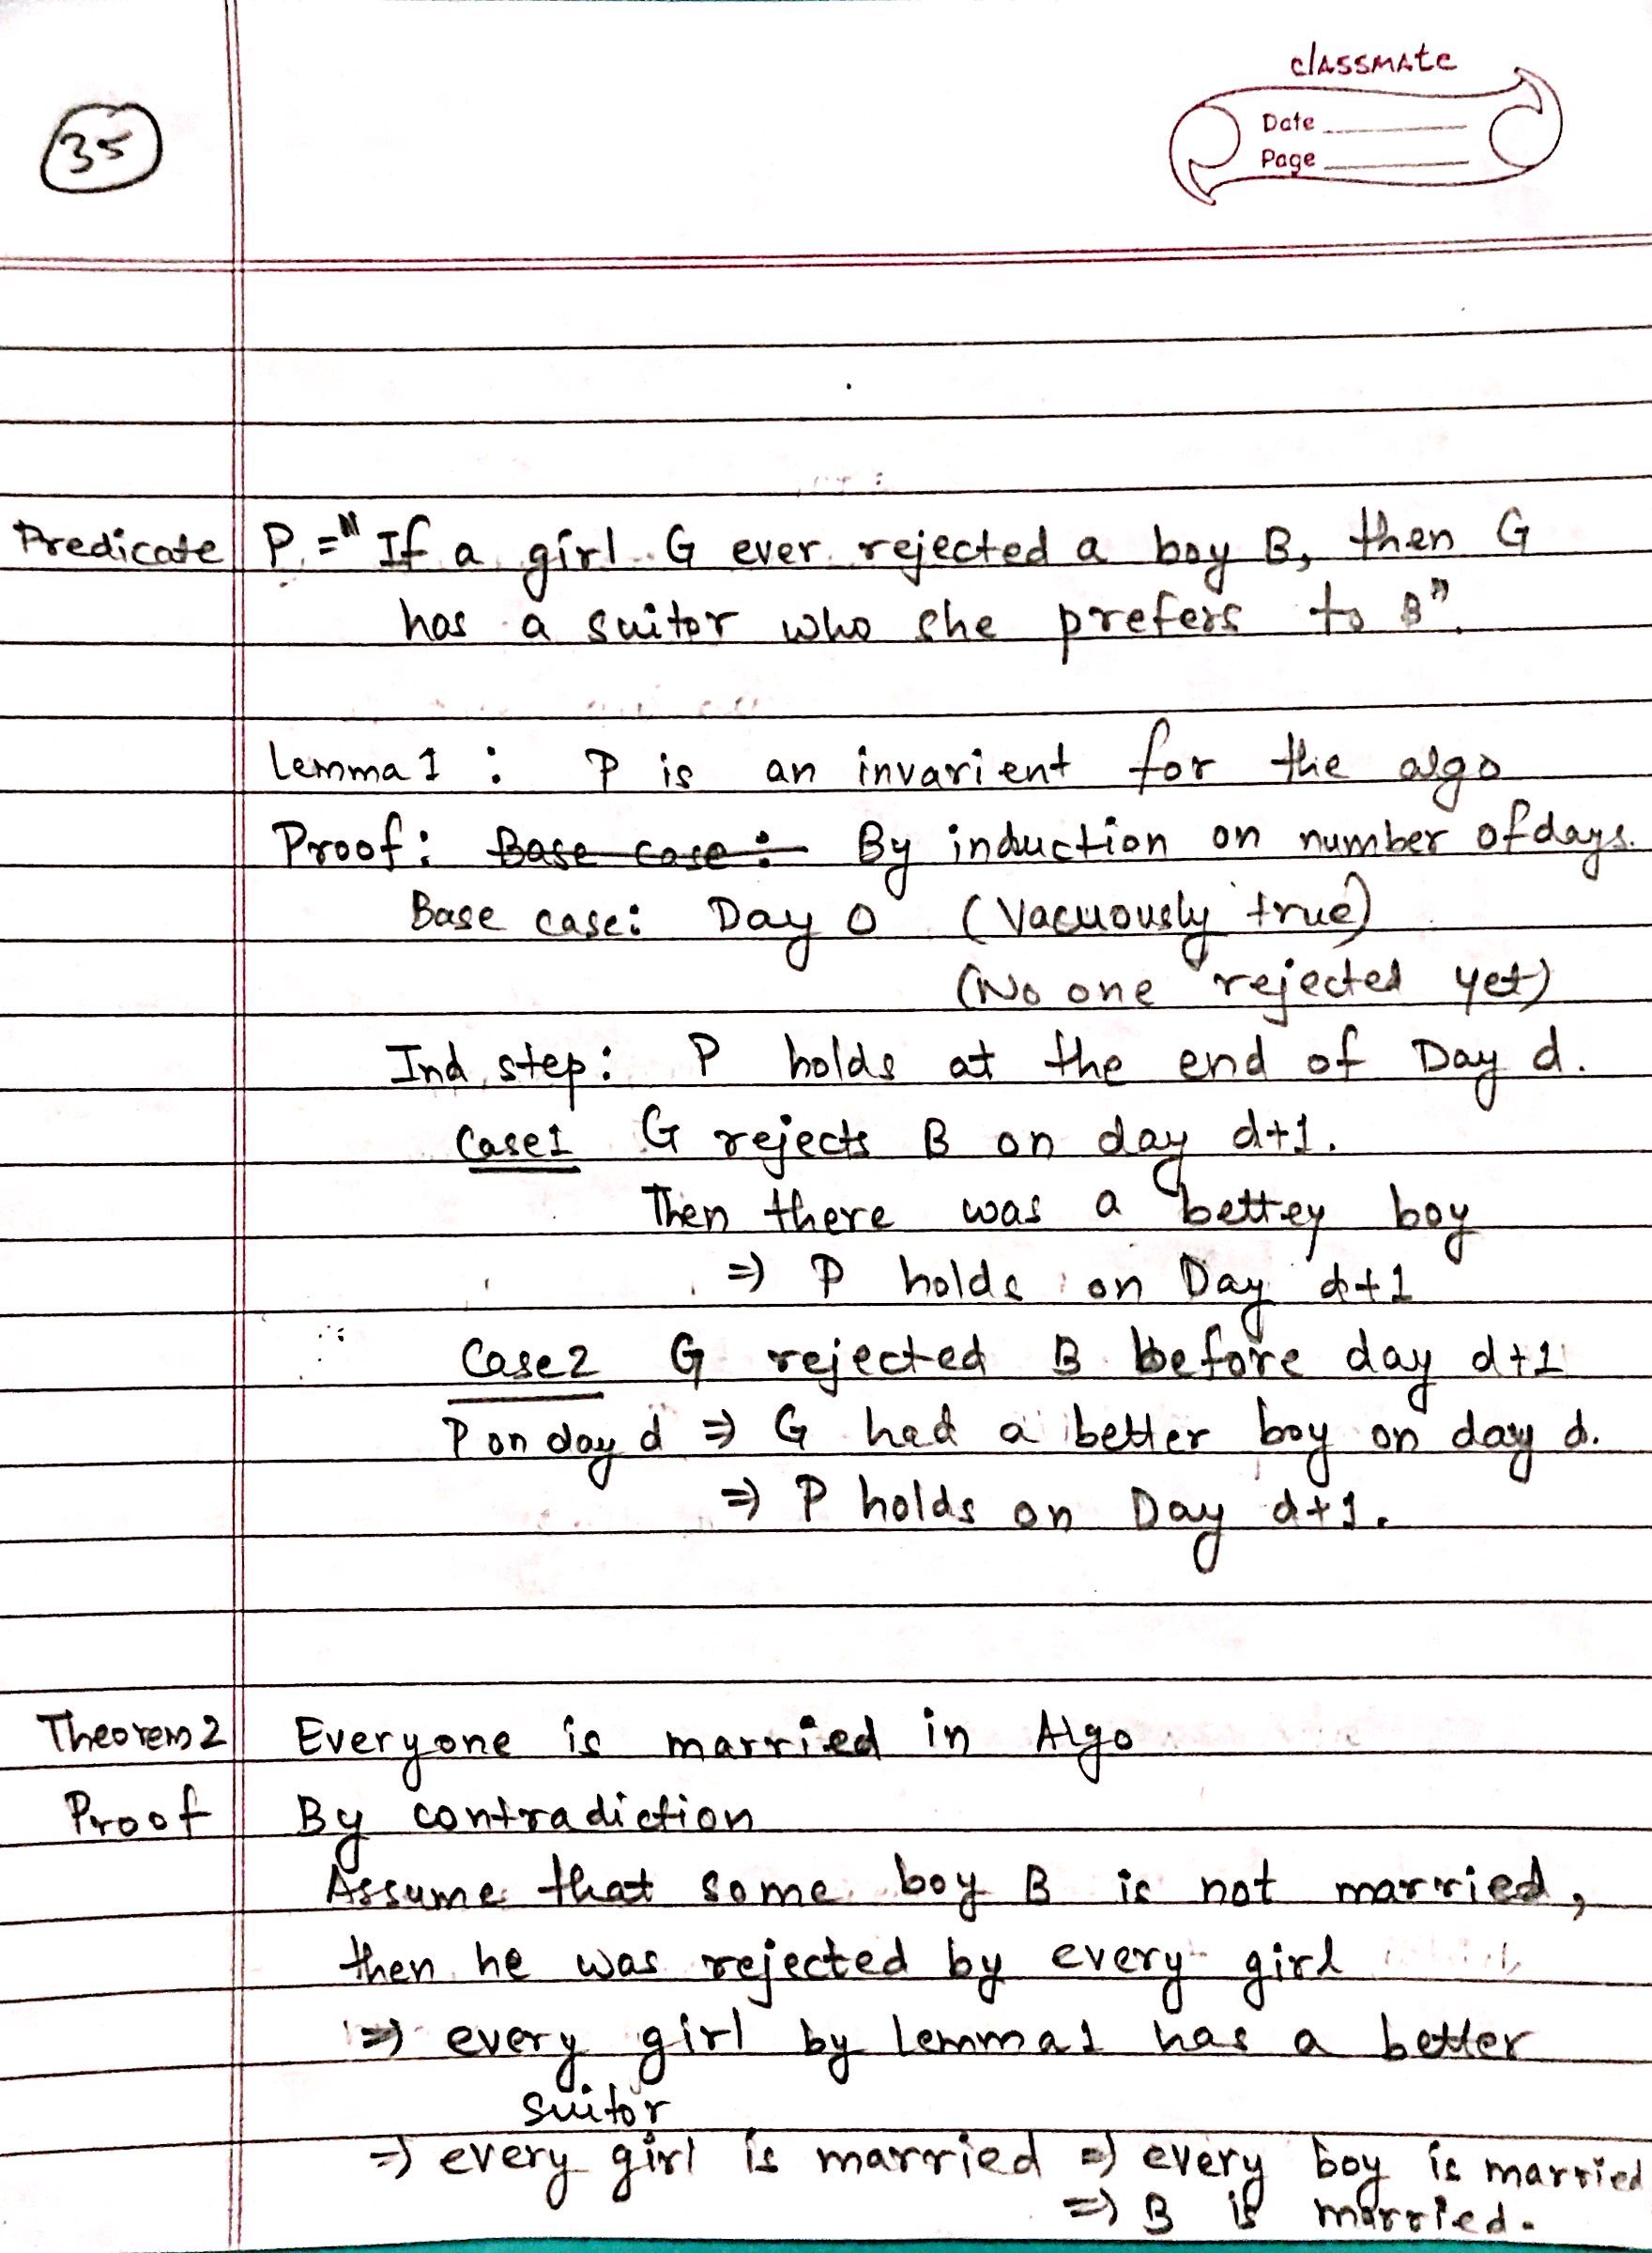 35
classmate
Date
Page
Predicate P = "If a girl G ever rejected a boy B, then G
has a suitor who she prefers to B".
Lemma 1 : P is an invarient for the algo
Proof: Base case: By induction on number of days.
Base case: Day 0 (Vacuously true)
(No one rejected yet)
Ind. step: P holds at the end of Day d.
Case1 G rejects B on day d+1.
Then there was a better boy
=) P holds on Day d+1
Case2 G rejected B before day d+1
P on day d => G had a better boy on day d.
=> P holds on Day d+1.
Theorem 2 Everyone is married in Algo
Proof By contradiction
Assume that some boy B is not married,
then he was rejected by every girl
=> every girl by lemma1 has a better
suitor
=) every girl is married =) every boy is married
=) B is married.